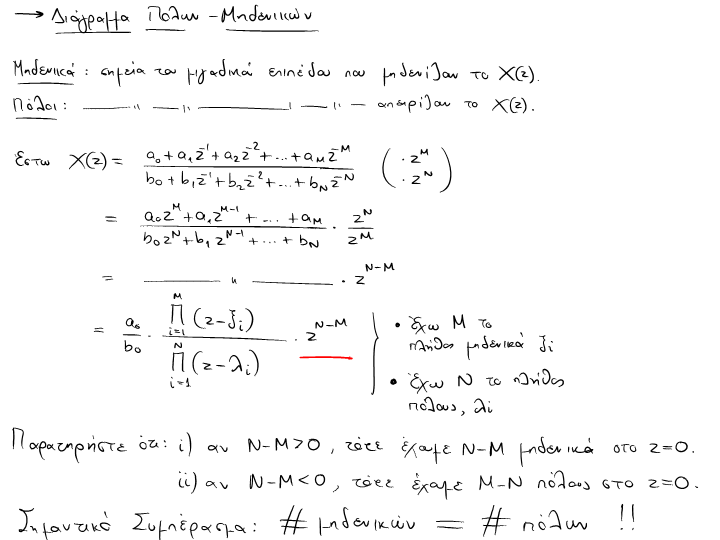 → Διάγραμμα Πόλων - Μηδενικών
Μηδενικά : σημεία του μιγαδικού επιπέδου που μηδενίζουν το X(z).
Πόλοι : —— 〃 — 〃 —— 〃 — απειρίζουν το X(z).
Έστω X(z) = (a₀ + a₁z⁻¹ + a₂z⁻² + ... + a_M z⁻ᴹ) / (b₀ + b₁z⁻¹ + b₂z⁻² + ... + b_N z⁻ᴺ) (· zᴹ / · zᴺ)
= (a₀zᴹ + a₁zᴹ⁻¹ + ... + a_M) / (b₀zᴺ + b₁zᴺ⁻¹ + ... + b_N) · zᴺ / zᴹ
= —— 〃 —— · zᴺ⁻ᴹ
= a₀/b₀ · ∏_{i=1}^{M} (z - ζᵢ) / ∏_{i=1}^{N} (z - λᵢ) · zᴺ⁻ᴹ
• έχω M το
πλήθος μηδενικά ζᵢ
• έχω N το πλήθος
πόλους, λᵢ
Παρατηρήστε ότι: i) αν N-M>0, τότε έχουμε N-M μηδενικά στο z=0.
ii) αν N-M<0, τότε έχουμε M-N πόλους στο z=0.
Σημαντικό Συμπέρασμα: # μηδενικών = # πόλων !!